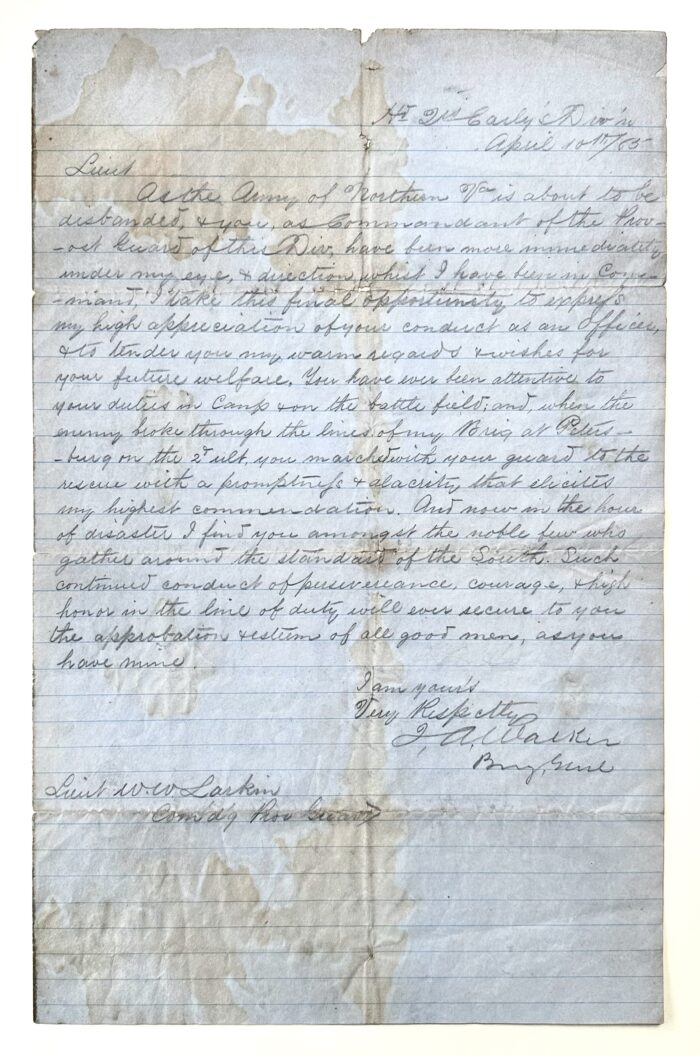 Hd Qrs Early's Div'n
April 10th/65
Lieut
As the Army of Northern Va is about to be
disbanded, & you, as Commandant of the Prov-
-ost Guard of this Div, have been more immediately
under my eye, & direction, whilst I have been in Com-
-mand, I take this final opportunity to express
my high appreciation of your conduct as an Officer,
& to tender you my warm regards & wishes for
your future welfare. You have ever been attentive to
your duties in Camp & on the battle field; and, when the
enemy broke through the lines of my Brig at Peters-
-burg on the 2d ult, you marched with your guard to the
rescue with a promptness & alacrity that elicites
my highest commendation. And now in the hour
of disaster I find you amongst the noble few who
gather around the standard of the South. Such
continued conduct of perseverance, courage, & high
honor in the line of duty will ever secure to you
the approbation & esteem of all good men, as you
have mine.
I am your's
Very Respctly
J, A, Walker
Brig, Genl
Lieut W. W Larkin
Com'd'g Prov Guard